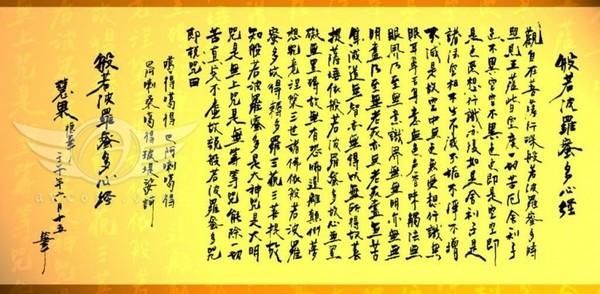 般若波羅蜜多心經
觀自在菩薩行深般若波羅蜜多時
照見五蘊皆空度一切苦厄舍利子
色不異空空不異色色即是空空即
是色受想行識亦復如是舍利子是
諸法空相不生不滅不垢不淨不增
不減是故空中無色無受想行識無
眼耳鼻舌身意無色聲香味觸法無
眼界乃至無意識界無無明亦無無
明盡乃至無老死亦無老死盡無苦
集滅道無智亦無得以無所得故菩
提薩埵依般若波羅蜜多故心無罣
礙無罣礙故無有恐怖遠離顛倒夢
想究竟涅槃三世諸佛依般若波羅
蜜多故得阿耨多羅三藐三菩提故
知般若波羅蜜多是大神咒是大明
咒是無上咒是無等等咒能除一切
苦真實不虛故說般若波羅蜜多咒
即說咒曰
噶得噶得 巴阿喇噶得
阿喇桑噶得
般若波羅蜜多心經
慧果
年六月十五